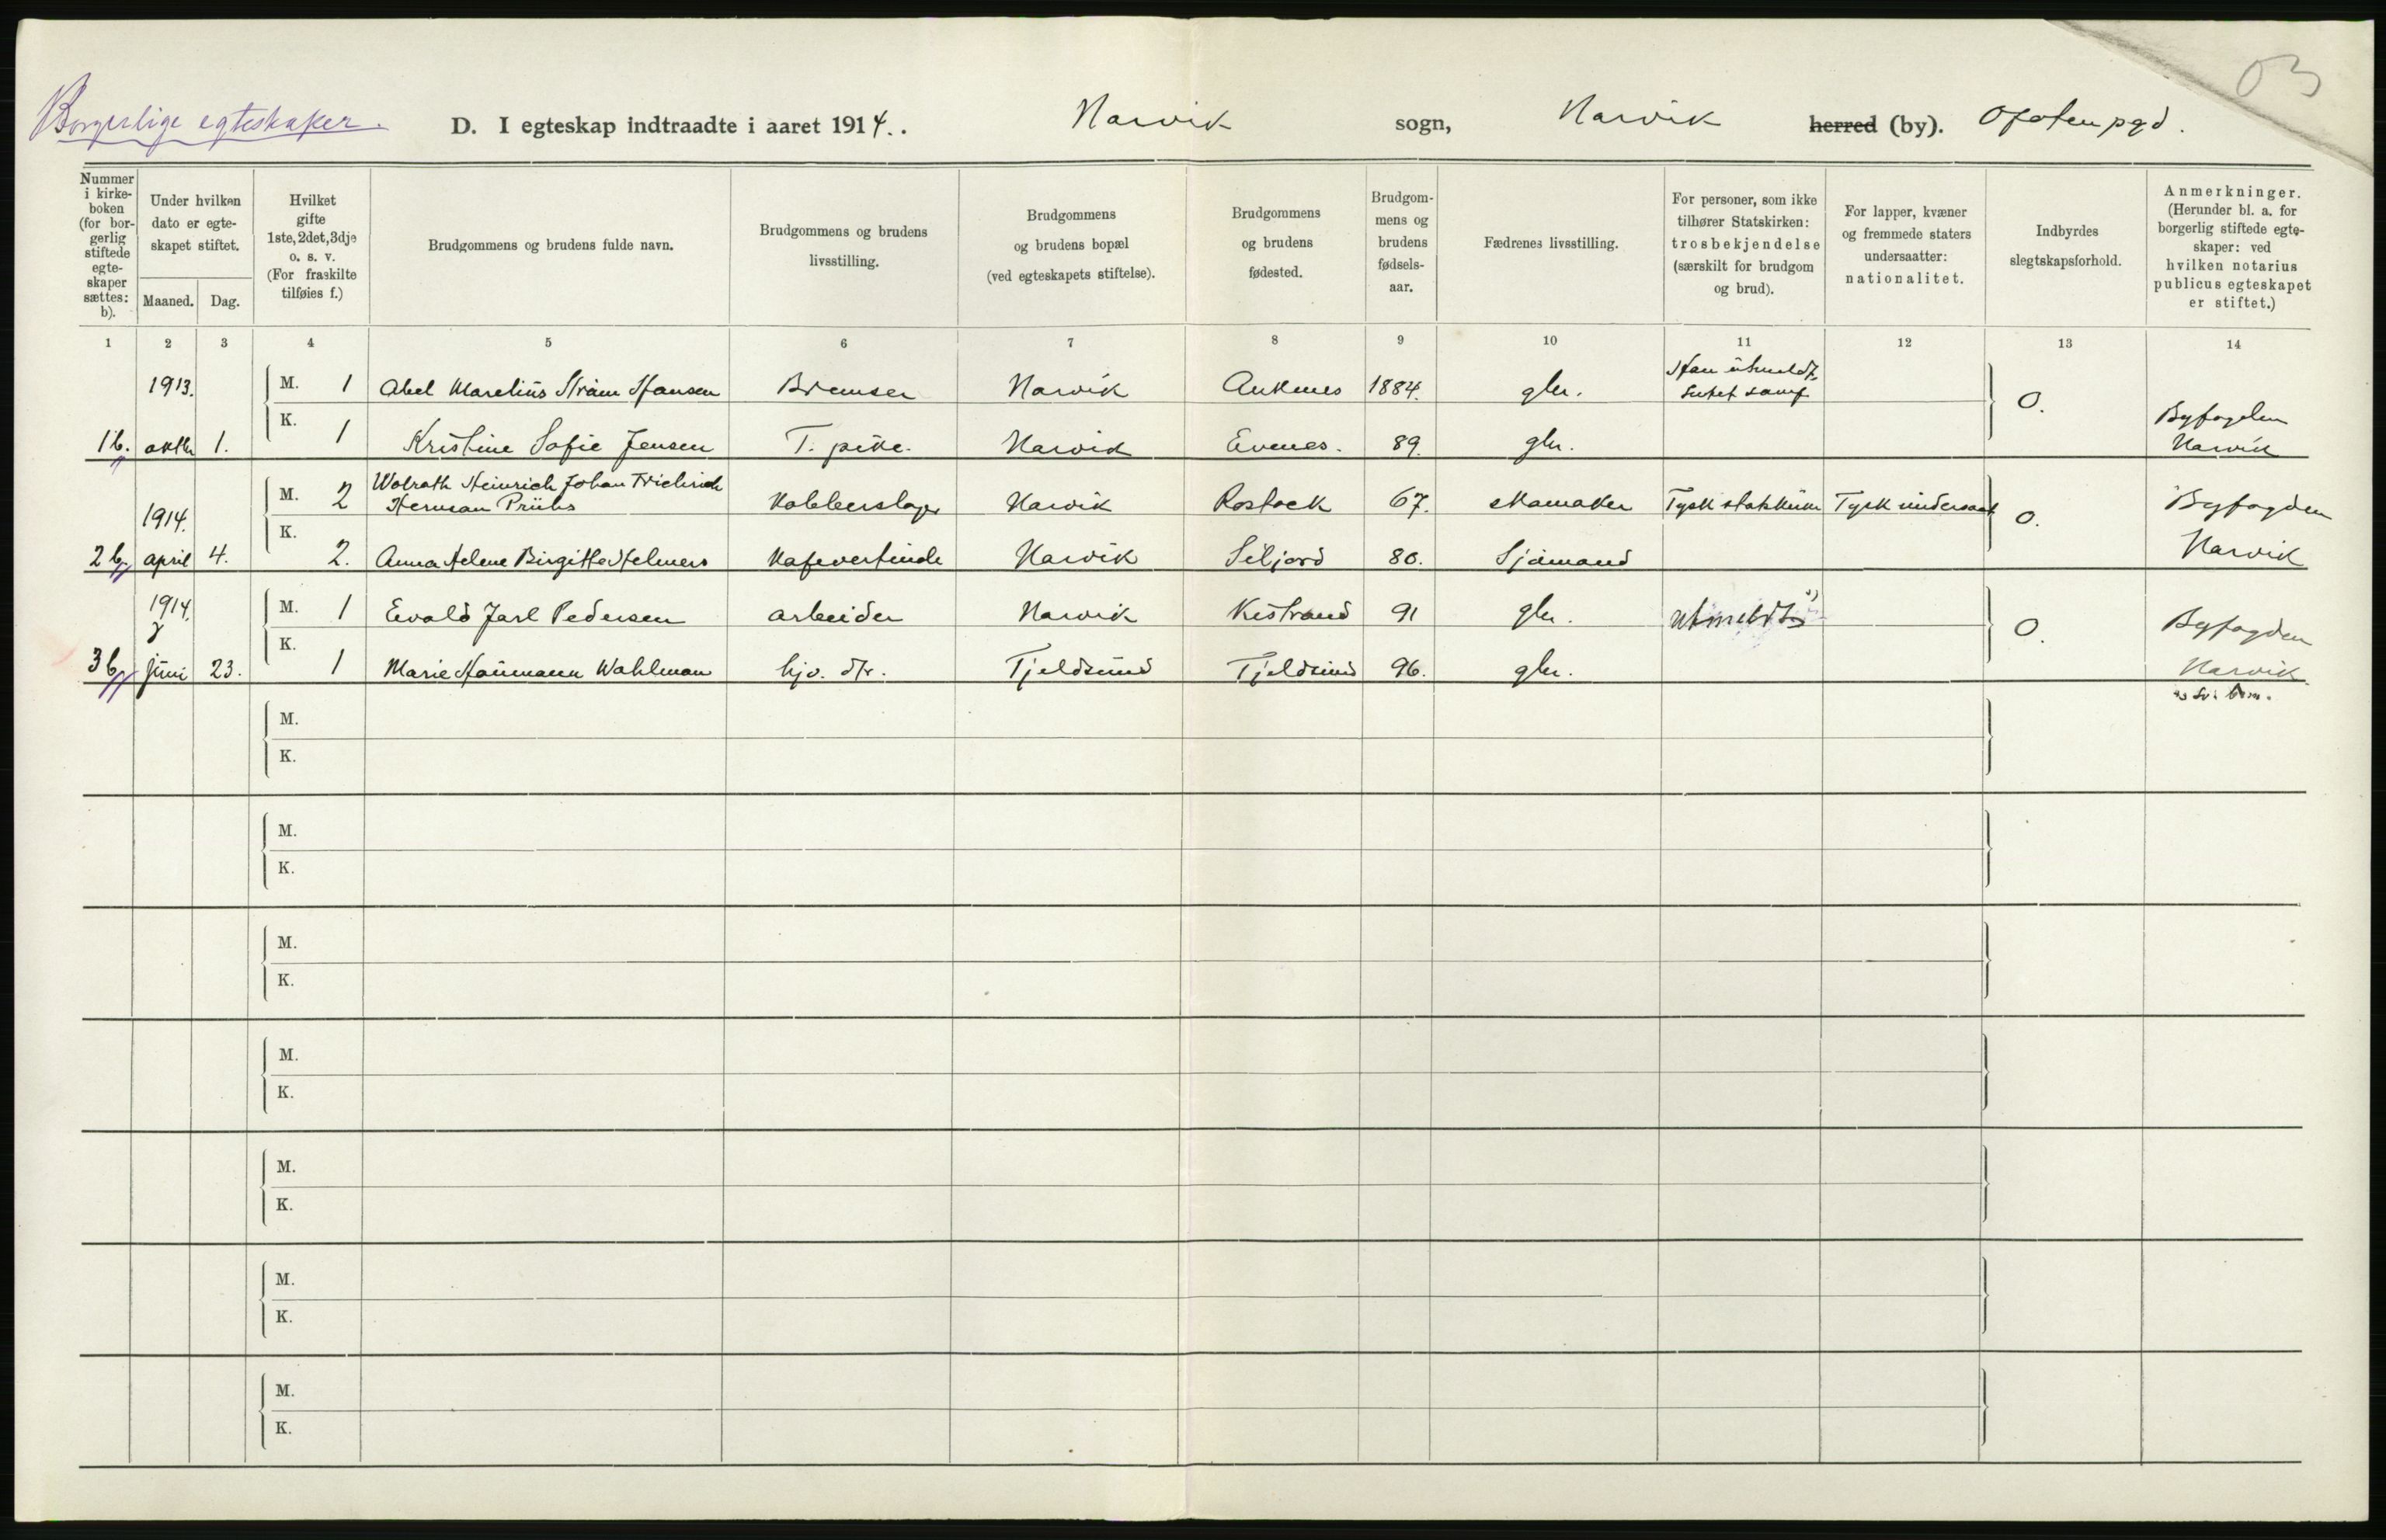 03
Borgerlige egteskaper.
D. I egteskap indtraadte i aaret 1914.. Narvik sogn, Narvik herred (by). Ofoten pgd.
Nummer i kirkeboken (for borgerlig stiftede egteskaper sættes: b).
Under hvilken dato er egteskapet stiftet.
Maaned. Dag.
Hvilket gifte 1ste, 2det, 3dje o. s. v. (For fraskilte tilføies f.)
Brudgommens og brudens fulde navn.
Brudgommens og brudens livsstilling.
Brudgommens og brudens bopæl (ved egteskapets stiftelse).
Brudgommens og brudens fødested.
Brudgommens og brudens fødselsaar.
Fædrenes livsstilling.
For personer, som ikke tilhører Statskirken: trosbekjendelse (særskilt for brudgom og brud).
For lapper, kvæner og fremmede staters undersaatter: nationalitet.
Indbyrdes slegtskapsforhold.
Anmerkninger. (Herunder bl. a. for borgerlig stiftede egteskaper: ved hvilken notarius publicus egteskapet er stiftet.)
1 2 3 4 5 6 7 8 9 10 11 12 13 14
1913. M. 1 Abel Marelius Strøm Hansen Bremser Narvik Ankenes 1884. gbr. Han utmeldt, intet samf. O.
1 b. oktbr 1. K. 1 Kristine Sofie Jensen T. pike. Narvik Evenes. 89. gbr. Byfogden Narvik
1914. M. 2 Wolrath Heinrich Johan Friedrich Herman Prühs Kobberslager Narvik Rostock 67. skomaker Tysk statskirke Tysk undersaat O. Byfogden
2 b. april 4. K. 2. Anna Helene Birgitte Helmers Kafevertinde Narvik Seljord 80. Sjømand Narvik
1914. M. 1 Evald Jarl Pedersen arbeider Narvik Kistrand 91 gbr. utmeldt O. Byfogden
3 b. juni 23. K. 1 Marie Haumann Wahlman hjv. dtr. Tjeldsund Tjeldsund 96. gbr. Narvik.
M.
K.
M.
K.
M.
K.
M.
K.
M.
K.
M.
K.
M.
K.